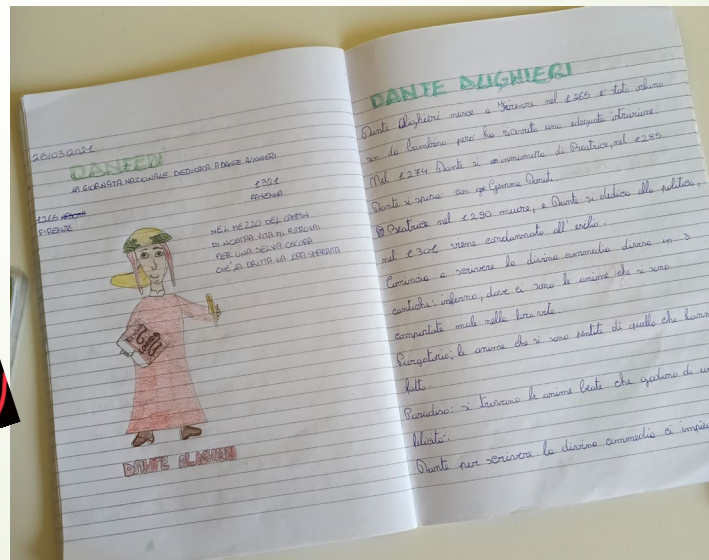 26/03/2021
DANTEDÌ
LA GIORNATA NAZIONALE DEDICATA A DANTE ALIGHIERI
1265
FIRENZE
1321
RAVENNA
NEL MEZZO DEL CAMMIN
DI NOSTRA VITA MI RITROVAI
PER UNA SELVA OSCURA
CHÉ LA DRITTA VIA ERA SMARRITA
DANTE ALIGHIERI
DANTE ALIGHIERI
Dante Alighieri nasce a Firenze nel 1265 è stato orfano
sin da bambino però ha ricevuto una adeguata istruzione.
Nel 1274 Dante si innamora di Beatrice, nel 1285
Dante si sposa con Gemma Donati.
Beatrice nel 1290 muore, e Dante si dedica alla politica,
nel 1301 viene condannato all'esilio.
Comincia a scrivere la divina commedia divisa in 3
cantiche: inferno, dove ci sono le anime che si sono
comportate male nella loro vita.
Purgatorio: le anime che si sono pentite di quello che hanno
fatto.
Paradiso: si trovano le anime beate che godono di un
felicità.
Dante per scrivere la divina commedia ci